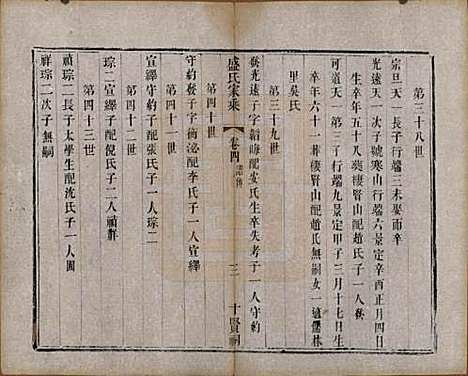 第三十八世
宗旦天一長子行端三未娶而卒
光遠天一次子號寒山行端六景定癸酉正月四日
生卒年五十八葬棲賢山配趙氏子一人發
可道天一第三子行端九景定甲子三月十七日生
卒年六十一葬棲賢山配趙氏無嗣女一適儒林
里吳氏
第三十九世
發光遠子字韜晦配尤氏生卒失考子一人守約
盛氏家乘
卷四
三
十賢祠
第四十世
守約發子字配李氏子一人宣繹
第四十一世
宣繹守約子配張氏子一人琮二
第四十二世
琮二宣繹子配倪氏子二人禎祥
第四十三世
禎琮二長子太學生配沈氏子一人
祥琮二次子無嗣